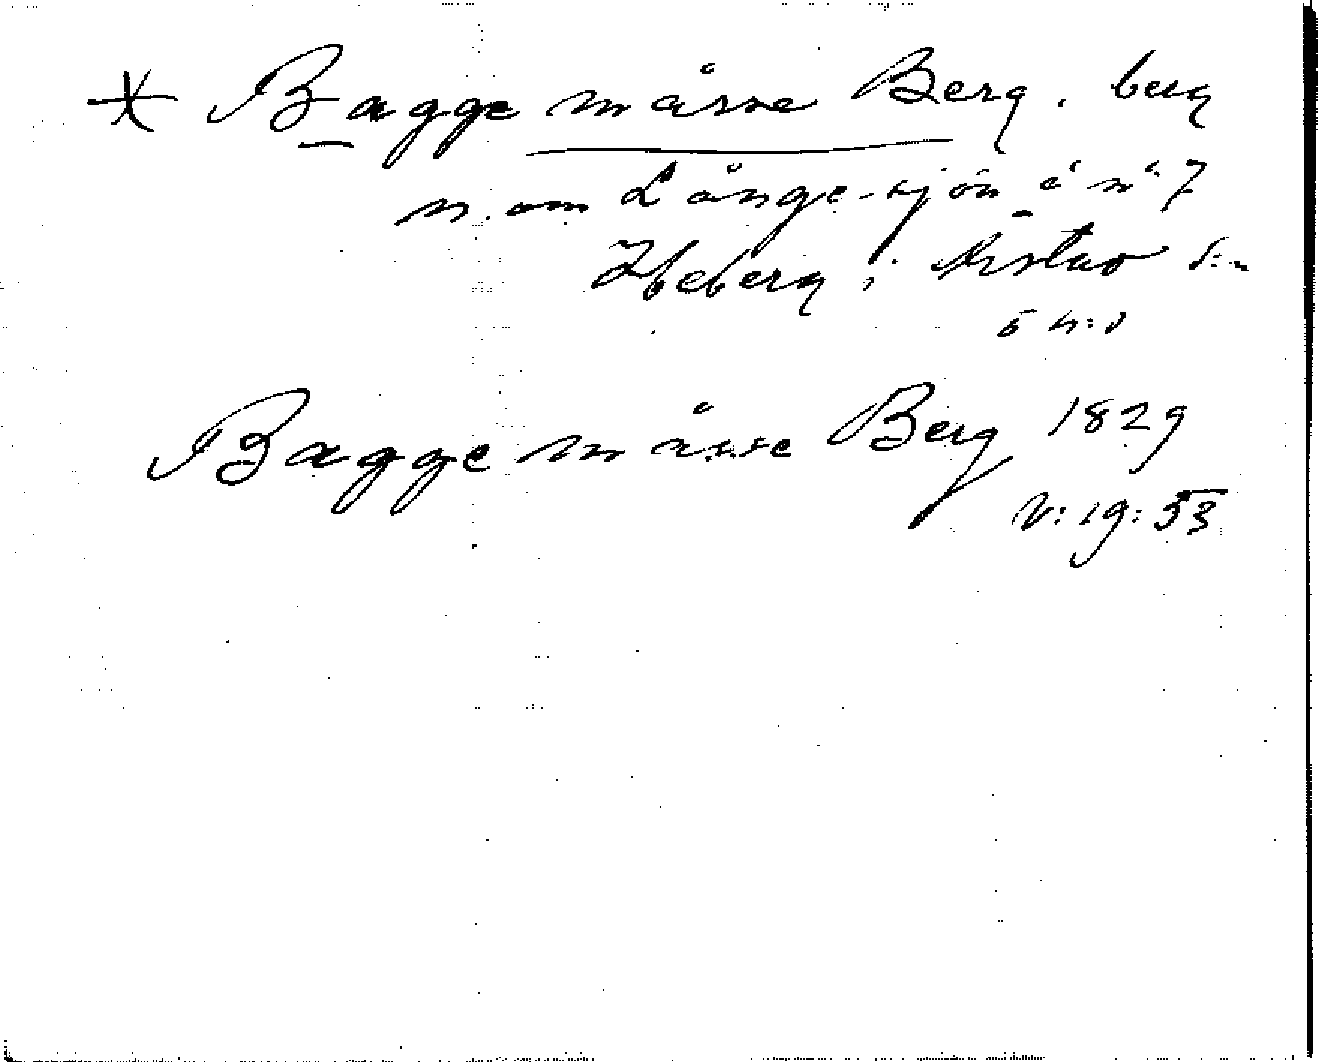 * Bagge måsse Berg, berg
n. om Långe-sjön å n° 7
Ibeberg, i Årstad s:n
Bagge måsse Berg 1829
V: 19: 53